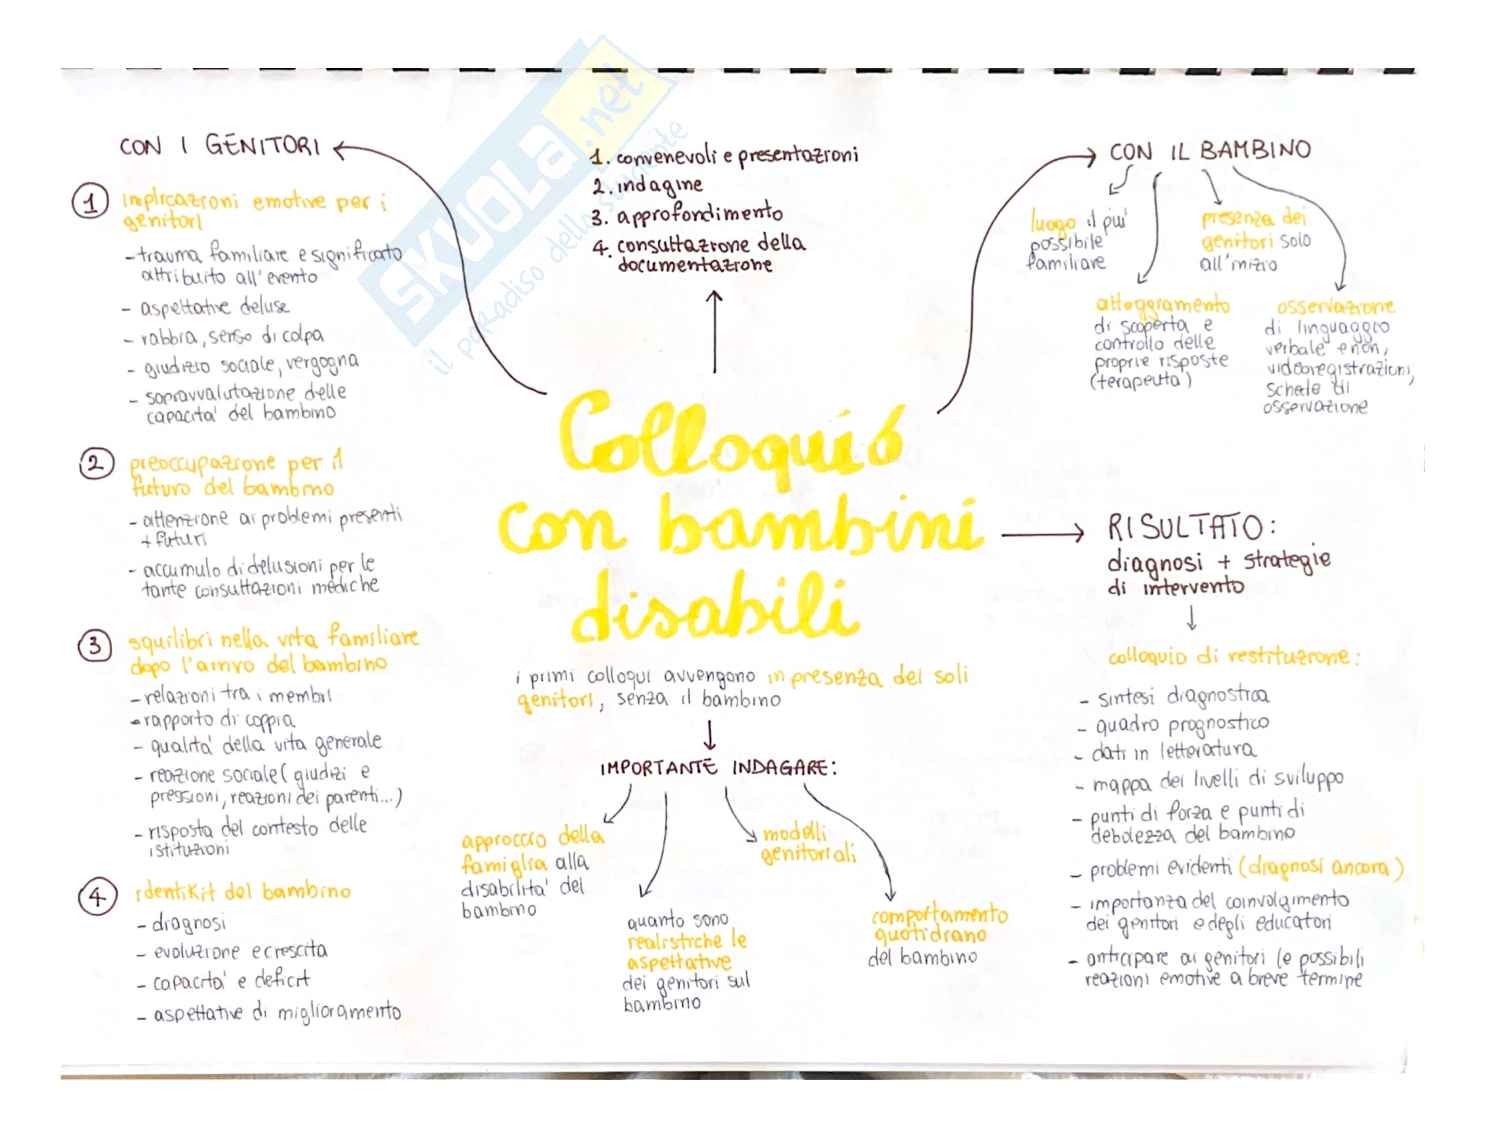 CON I GENITORI
1
implicazioni emotive per i
genitori
- trauma familiare e significato
attribuito all'evento
- aspettative deluse
- rabbia, senso di colpa
- giudizio sociale, vergogna
- sopravvalutazione delle
capacita' del bambino
2
preoccupazione per il
futuro del bambino
- attenzione ai problemi presenti
+ futuri
- accumulo di delusioni per le
tante consultazioni mediche
3
squilibri nella vita familiare
dopo l'arrivo del bambino
- relazioni tra i membri
- rapporto di coppia
- qualita' della vita generale
- reazione sociale (giudizi e
pressioni, reazioni dei parenti...)
- risposta del contesto delle
istituzioni
4
identikit del bambino
- diagnosi
- evoluzione e crescita
- capacita' e deficit
- aspettative di miglioramento
1. convenevoli e presentazioni
2. indagine
3. approfondimento
4. consultazione della
documentazione
SKUOLA.net
il paradiso dello studente
Colloquio
con bambini
disabili
i primi colloqui avvengono in presenza dei soli
genitori, senza il bambino
IMPORTANTE INDAGARE:
approccio della
famiglia alla
disabilita' del
bambino
quanto sono
realistiche le
aspettative
dei genitori sul
bambino
modelli
genitoriali
comportamento
quotidiano
del bambino
CON IL BAMBINO
luogo il piu'
possibile
familiare
atteggiamento
di scoperta e
controllo delle
proprie risposte
(terapeuta)
presenza dei
genitori solo
all'inizio
osservazione
di linguaggio
verbale e non,
videoregistrazioni,
schede di
osservazione
RISULTATO:
diagnosi + strategie
di intervento
colloquio di restituzione:
- sintesi diagnostica
- quadro prognostico
- dati in letteratura
- mappa dei livelli di sviluppo
- punti di forza e punti di
debolezza del bambino
- problemi evidenti (diagnosi ancora)
- importanza del coinvolgimento
dei genitori e degli educatori
- anticipare ai genitori le possibili
reazioni emotive a breve termine